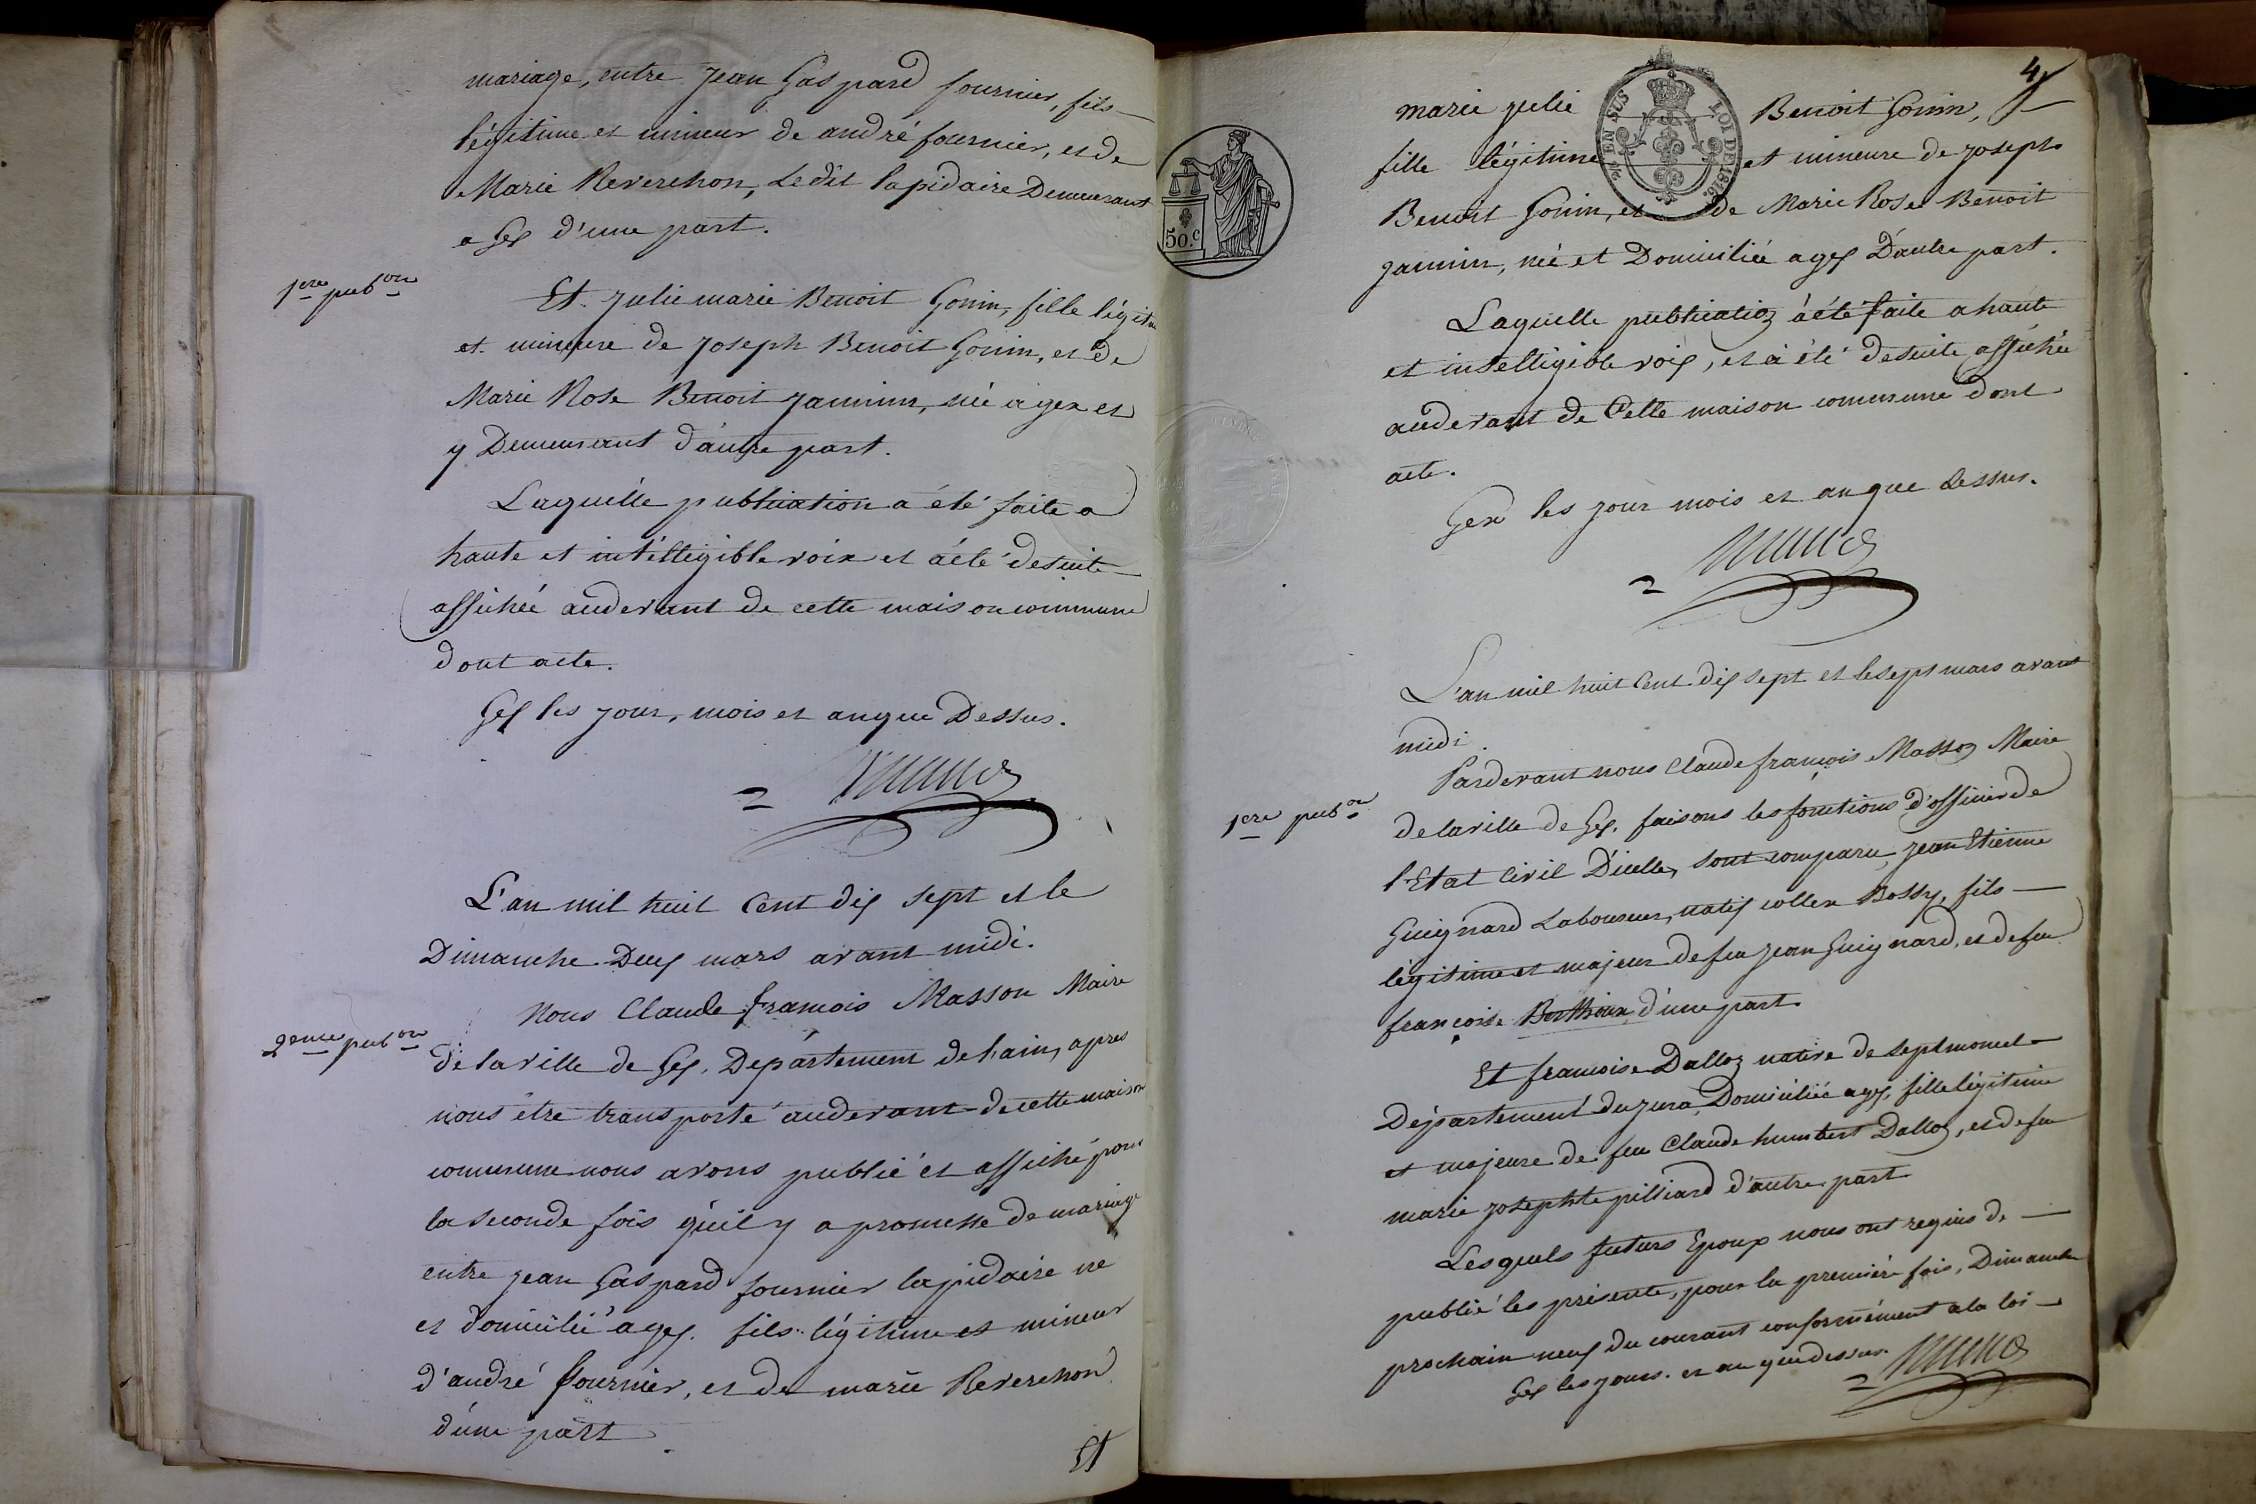 mariage, entre Jean Gaspard fournier, fils
légitime et mineur de andré fournier, et de
Marie Reverchon, Ledit lapidaire Demeurant
a Gex d'une part.
1ere pubon
Et Julie marie Benoit Gonin, fille légit
et mineure de Joseph Benoit Gonin, et de
Marie Rose Benoit Jannin, née a gex et
y Demeurant d'autre part.
Laquelle publication a été faite a
haute et intélligible voix et a été desuite
affichée audevant de cette maison commune
dont acte.
Gex les jour, mois et anque Dessus.
L'an mil huit Cent dix sept et le
Dimanche Deux mars avant midi.
Nous Claude françois Masson Maire
2eme pubon
de la ville de Gex, Département de lain, apres
nous être transporté audevant de cette maison
commune nous avons publié et affiché pour
la seconde fois qu'il y a promesse de mariage
entre Jean Gaspard fournier lapidaire ne
et domicilié a gex. fils légitime et mineur
d'andré fournier, et de marie Reverchon
d'une part
Et
4
marie julie Benoit Gonin,
4e EN SUS LOI DE 1816.
fille légitime et mineure de joseph
Benoit Gonin, et de Marie Rose Benoit
50.c
jannin, née et Domiciliée a gex D'autre part.
Laquelle publication a été faite a haute
et intelligible voix, et a été desuite affichée
audevant de Cette maison commune dont
acte.
Gex les jour mois et an que dessus.
L'an mil huit Cent dix sept et le sept mars avant
midi.
Pardevant nous Claude françois Masson Maire
1ere pubon
de la ville de Gex. faisons les fonctions d'officier de
l'Etat Civil D'icelle, sont comparu, Jean Etienne
Guignard Laboureur, natif collex Bossy, fils
légitime et majeur de feu Jean Guignard, et de feu
françoise d'une part
Et francoise Dalloz native de septmoncel
Département du Jura, Domiciliée a gex, fille légitime
et majeure de feu Claude humbert Dalloz, et de feu
marie josephte pilliard d'autre part
Lesquels futurs Epoux nous ont requis de
publié les présente, pour la première fois, Dimanche
prochain neuf du courant conformément a la loi
Gex les jours. et an que dessus.